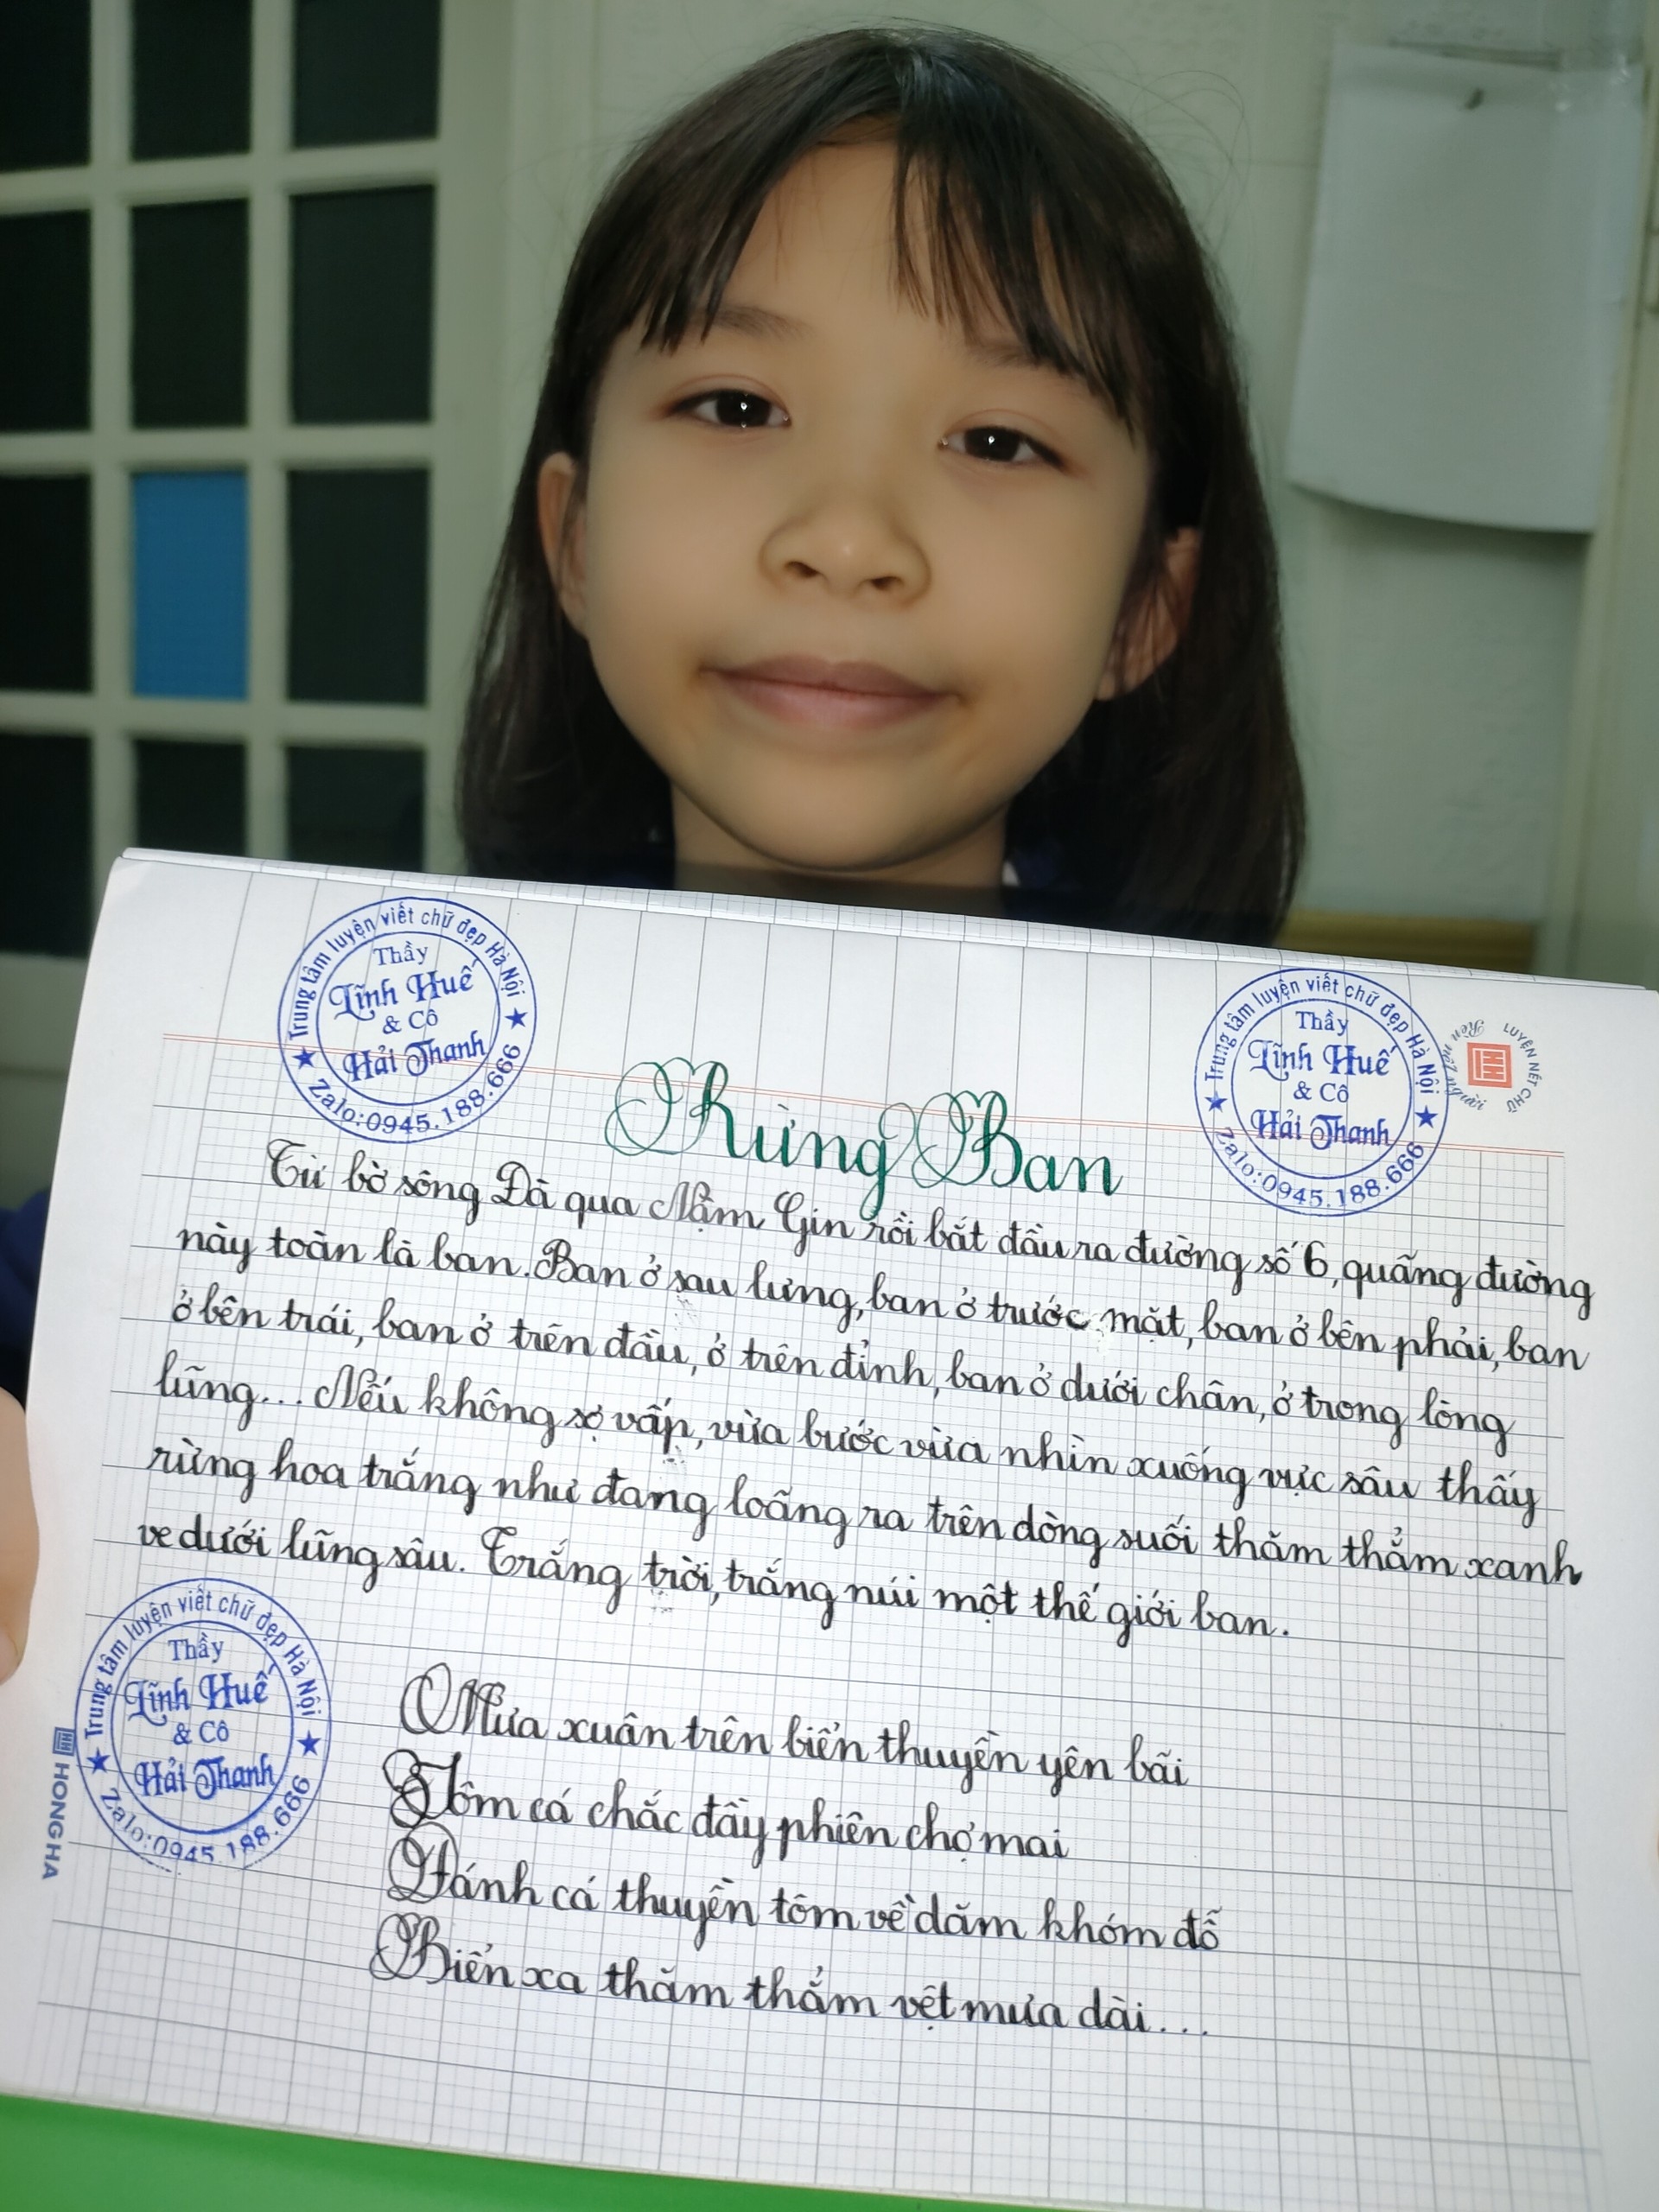 Trung tâm luyện viết chữ đẹp Hà Nội
Thầy
Lĩnh Huế
& Cô
Hải Thanh
Zalo:0945.188.666
Trung tâm luyện viết chữ đẹp Hà Nội
Thầy
Lĩnh Huế
& Cô
Hải Thanh
Zalo:0945.188.666
LUYỆN NÉT CHỮ
Rèn nết người
Rừng Ban
Từ bờ sông Đà qua Nậm Gin rồi bắt đầu ra đường số 6, quãng đường
này toàn là ban. Ban ở sau lưng, ban ở trước mặt, ban ở bên phải, ban
ở bên trái, ban ở trên đầu, ở trên đỉnh, ban ở dưới chân, ở trong lòng
lũng... Nếu không sợ vấp, vừa bước vừa nhìn xuống vực sâu thấy
rừng hoa trắng như đang loãng ra trên dòng suối thăm thẳm xanh
ve dưới lũng sâu. Trắng trời, trắng núi một thế giới ban.
Mưa xuân trên biển thuyền yên bãi
Tôm cá chắc đầy phiên chợ mai
Đánh cá thuyền tôm về dăm khóm đỗ
Biển xa thăm thẳm vệt mưa dài...
Trung tâm luyện viết chữ đẹp Hà Nội
Thầy
Lĩnh Huế
& Cô
Hải Thanh
Zalo:0945.188.666
HONG HA